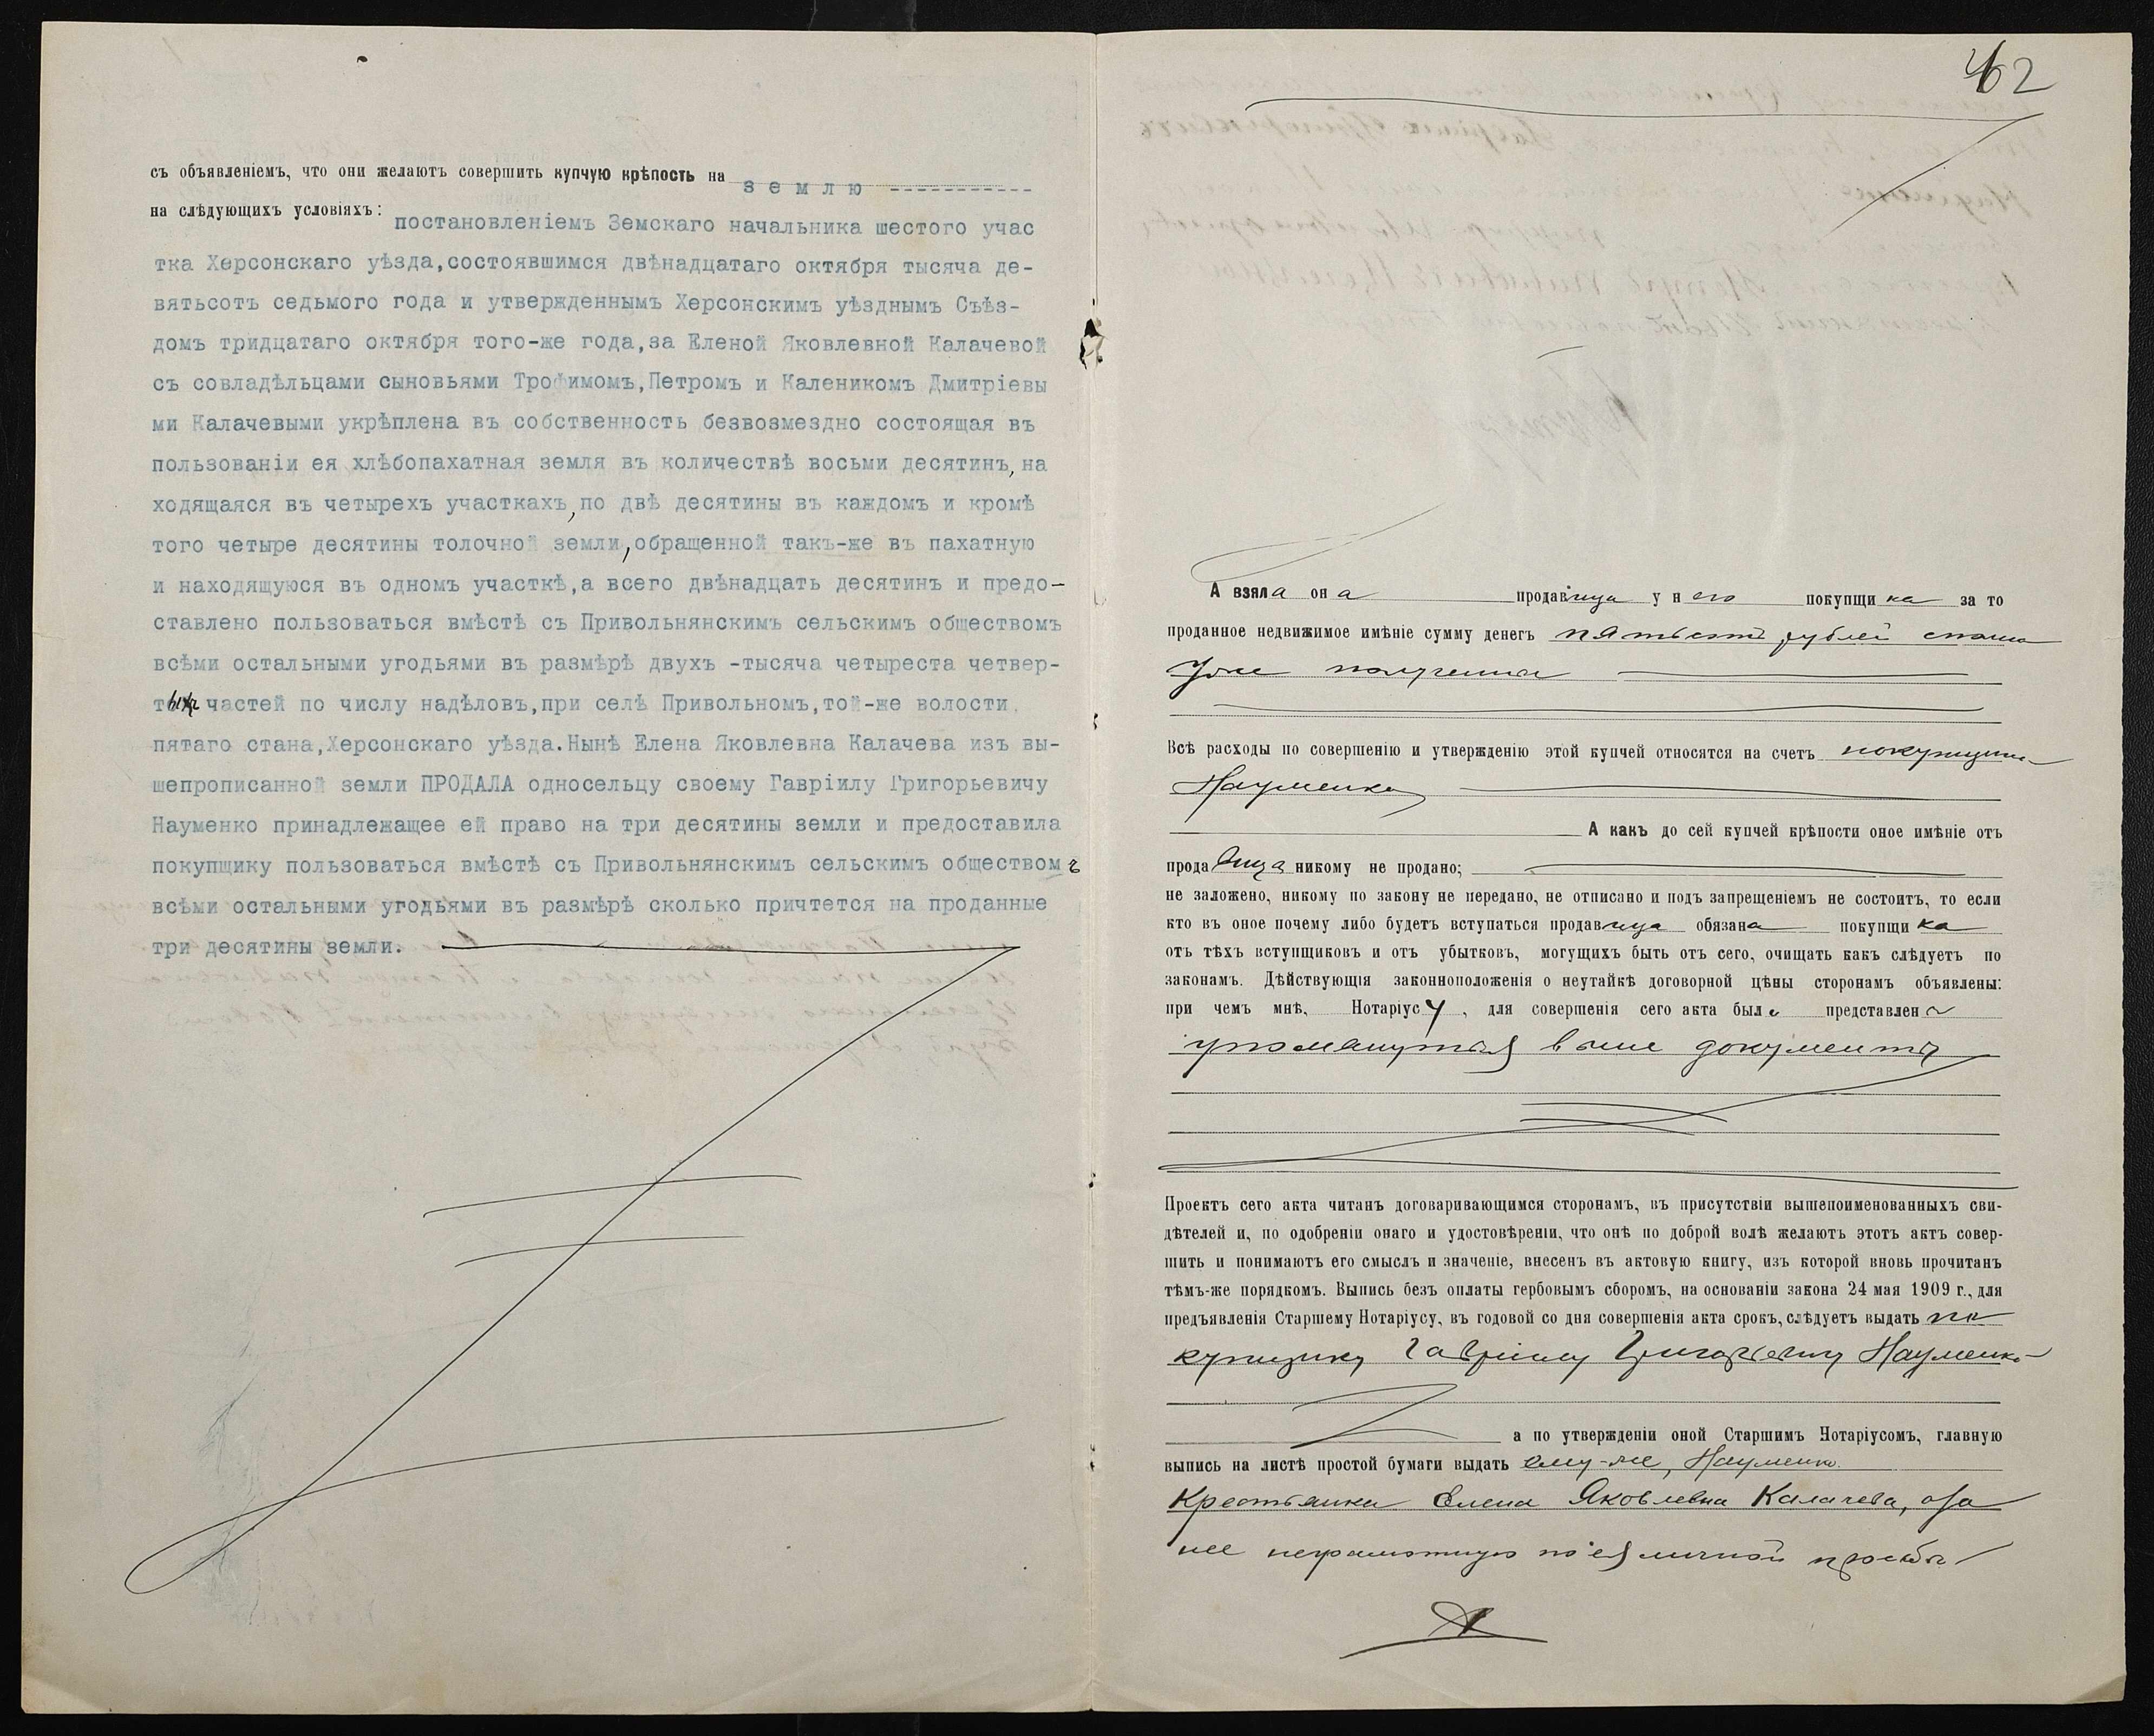 съ объявленіемъ, что они желаютъ совершить купчую крѣпость на землю
на слѣдующихъ условіяхъ: постановленіемъ Земскаго начальника шестого учас
тка Херсонскаго уѣзда,состоявшимся двѣнадцатаго октября тысяча де-
вятьсотъ седьмого года и утвержденнымъ Херсонскимъ уѣзднымъ Съѣз-
домъ тридцатаго октября того-же года,за Еленой Яковлевной Калачевой
съ совладѣльцами сыновьями Трофимомъ,Петромъ и Каленикомъ Дмитріевы
ми Калачевыми укрѣплена въ собственность безвозмездно состоящая въ
пользованіи ея хлѣбопахатная земля въ количествѣ восьми десятинъ,на
ходящаяся въ четырехъ участкахъ,по двѣ десятины въ каждомъ и кромѣ
того четыре десятины толочной земли,обращенной такъ-же въ пахатную
и находящуюся въ одномъ участкѣ,а всего двѣнадцать десятинъ и предо-
ставлено пользоваться вмѣстѣ съ Привольнянскимъ сельскимъ обществомъ
всѣми остальными угодьями въ размѣрѣ двухъ -тысяча четыреста четвер-
тыхъ частей по числу надѣловъ,при селѣ Привольномъ,той-же волости,
пятаго стана,Херсонскаго уѣзда.Нынѣ Елена Яковлевна Калачева изъ вы-
шепрописанной земли ПРОДАЛА односельцу своему Гавріилу Григорьевичу
Науменко принадлежащее ей право на три десятины земли и предоставила
покупщику пользоваться вмѣстѣ съ Привольнянскимъ сельскимъ обществомъ
всѣми остальными угодьями въ размѣрѣ сколько причтется на проданные
три десятины земли.
62
А взяла она продавица у него покупщика за то
проданное недвижимое имѣніе сумму денегъ пятьсотъ рублей сполна
уже получена
Всѣ расходы по совершенію и утвержденію этой купчей относятся на счетъ покупщика
Науменко
А какъ до сей купчей крѣпости оное имѣніе отъ
продавица никому не продано;
не заложено, никому по закону не передано, не отписано и подъ запрещеніемъ не состоитъ, то если
кто въ оное почему либо будетъ вступаться продавица обязана покупщика
отъ тѣхъ вступщиковъ и отъ убытковъ, могущихъ быть отъ сего, очищать какъ слѣдуетъ по
законамъ. Дѣйствующія законноположенія о неутайкѣ договорной цѣны сторонамъ объявлены:
при чемъ мнѣ, Нотаріусу, для совершенія сего акта были представлены
упомянутыя выше документы
Проектъ сего акта читанъ договаривающимся сторонамъ, въ присутствіи вышепоименованныхъ сви-
дѣтелей и, по одобреніи онаго и удостовѣреніи, что онѣ по доброй волѣ желаютъ этотъ актъ совер-
шить и понимаютъ его смыслъ и значеніе, внесенъ въ актовую книгу, изъ которой вновь прочитанъ
тѣмъ-же порядкомъ. Выпись безъ оплаты гербовымъ сборомъ, на основаніи закона 24 мая 1909 г., для
предъявленія Старшему Нотаріусу, въ годовой со дня совершенія акта срокъ, слѣдуетъ выдать по
купщику Гавріилу Григорьевичу Науменко
а по утвержденіи оной Старшимъ Нотаріусомъ, главную
выпись на листѣ простой бумаги выдать ему-же, Науменко.
Крестьянка Елена Яковлевна Калачева, а за
нее неграмотную по ея личной просьбѣ